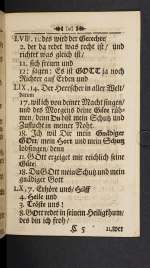 LVIII. 11. des wird der Gerechte
2. der da redet was recht ist/ und
richtet was gleich ist/
11. sich freuen und
12. sagen: Es ist GOTT ja noch
Richter auf Erden und
LIX. 14. Der Herrscher in aller Welt/
darum
17. will ich von deiner Macht singen/
und des Morgens deine Güte rüh-
men; denn Du bist mein Schutz und
Zuflucht in meiner Noht.
18. Ich will Dir mein gnädiger
GOtt, mein Hort und mein Schutz
lobsingen, denn
11. GOtt erzeiget mir reichlich seine
Güte.
18. Du GOtt mein Schutz und mein
gnädiger Gott
LX, 7. Erhöre uns/ Hilff
4. Heile und
3. Tröste uns!
8. GOtt redet in seinem Heiligthum/
des bin ich froh/
11. wer